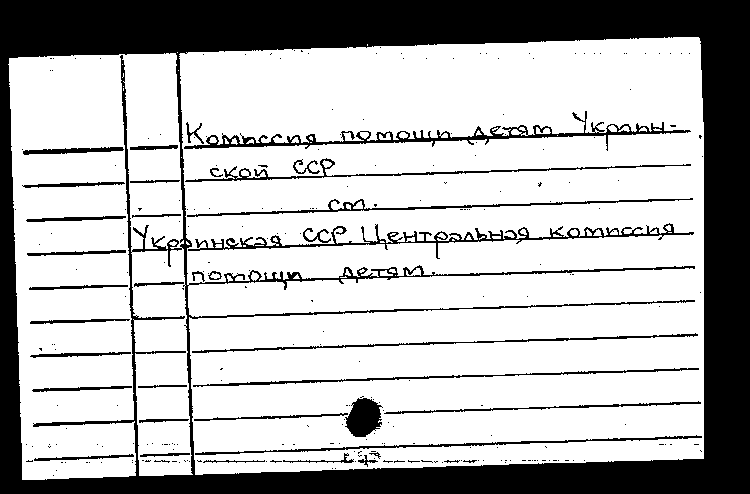 Комиссия помощи детям Украин-
ской ССР
см.
Украинская ССР. Центральная комиссия
помощи детям.